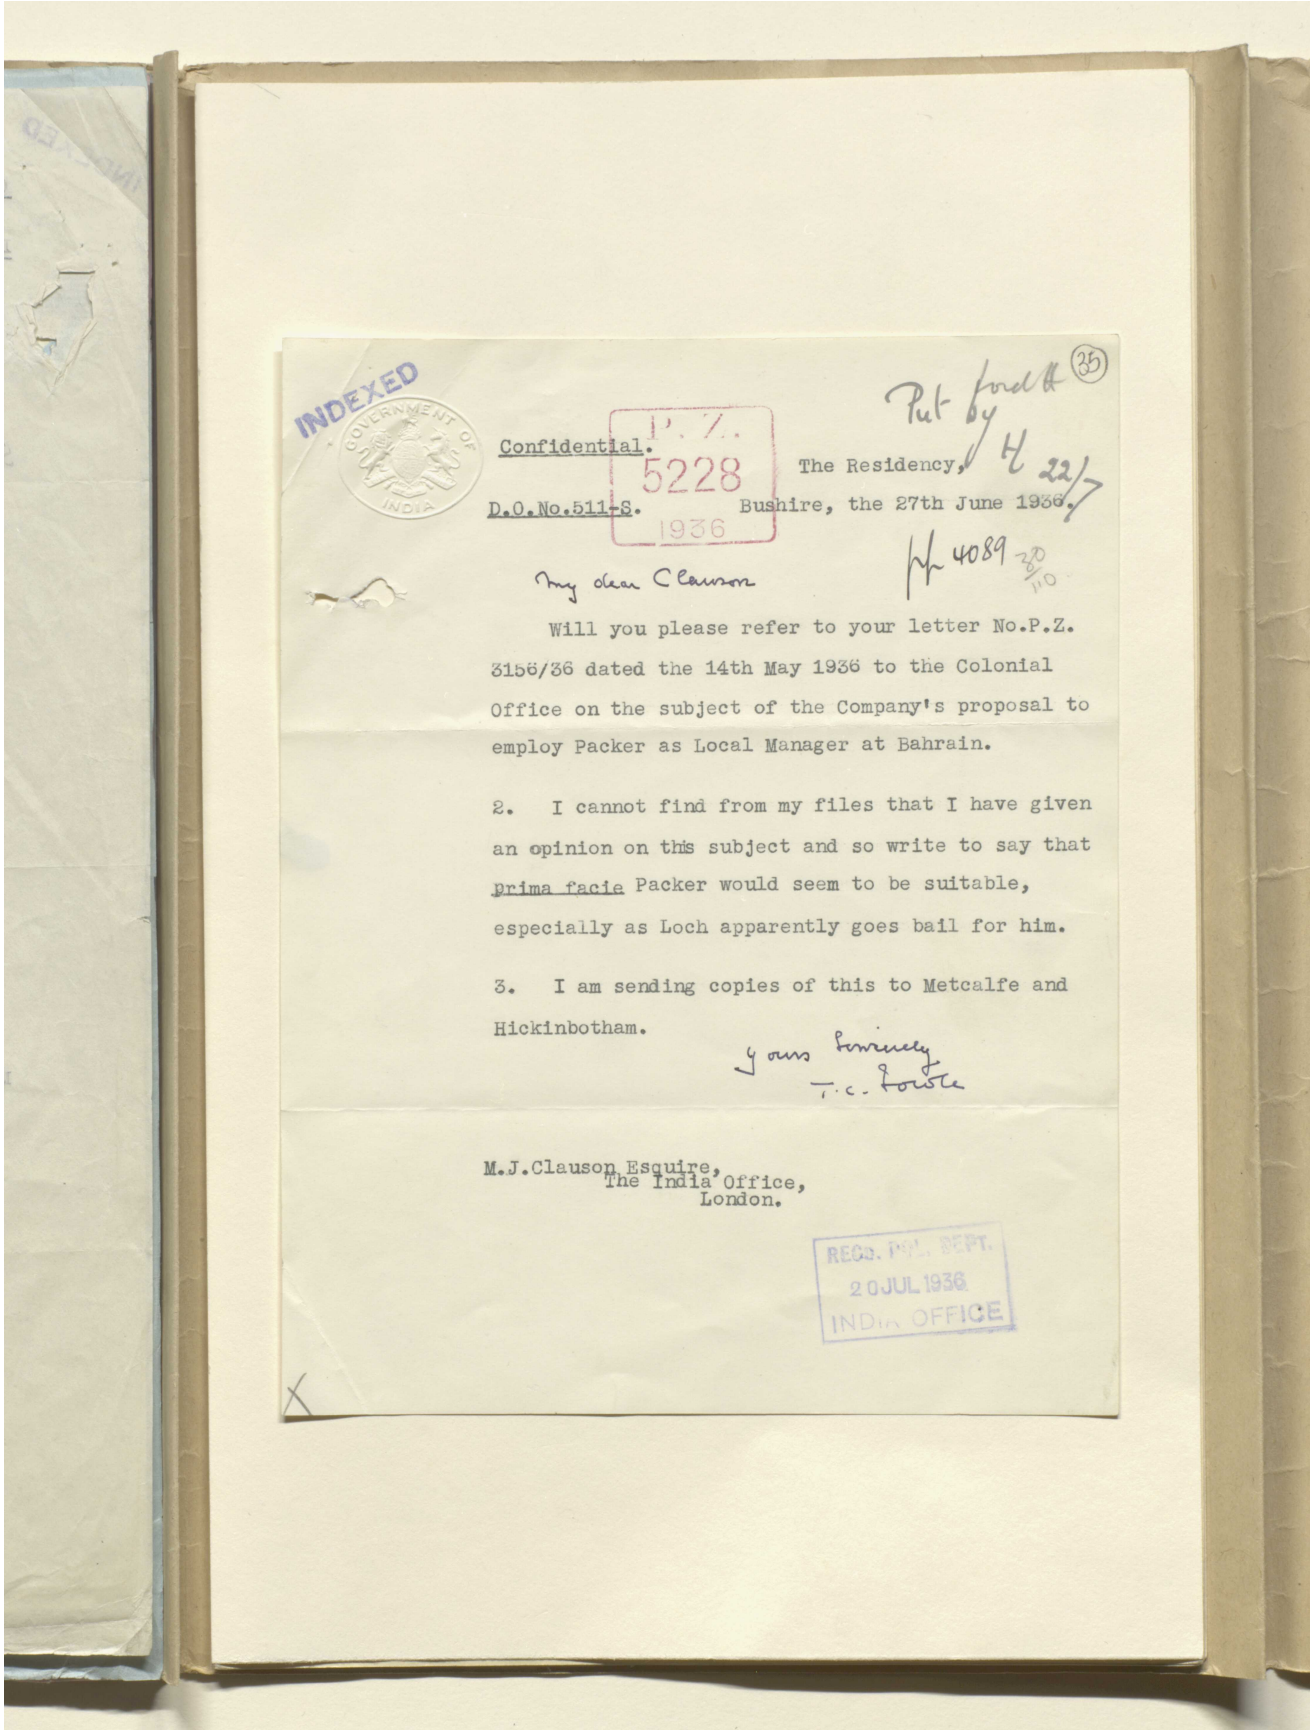 INDEXED
GOVERNMENT OF INDIA
35
Put by
22/7
P. Z.
5228
1936
Confidential.
The Residency,
D.O.No.511-S.
Bushire, the 27th June 1936.
pp 4089
My dear Clauson
Will you please refer to your letter No.P.Z.
3156/36 dated the 14th May 1936 to the Colonial
Office on the subject of the Company's proposal to
employ Packer as Local Manager at Bahrain.
2. I cannot find from my files that I have given
an opinion on this subject and so write to say that
prima facie Packer would seem to be suitable,
especially as Loch apparently goes bail for him.
3. I am sending copies of this to Metcalfe and
Hickinbotham.
Yours Sincerely
T.C. Fowle
M.J.Clauson Esquire,
The India Office,
London.
RECD. POL. DEPT.
20 JUL 1936
INDIA OFFICE
X
INDEXED